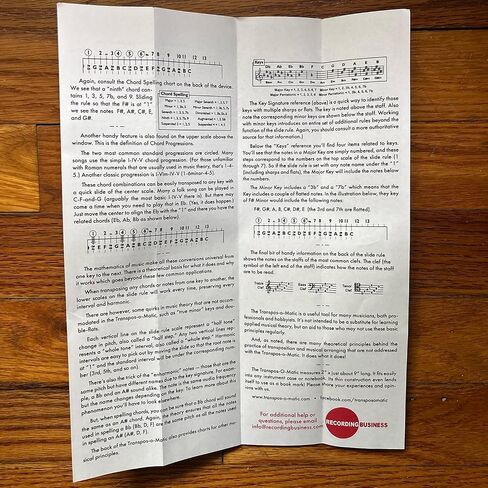 ① 2 .. 3 ④ 5 ⑥ 7 8 9 10 11 12 13
Again, consult the Chord Spelling chart on the back of the device.
We see that a "ninth" chord con-
tains 1, 3, 5, 7b, and 9. Sliding
the rule so that the F# is at "1"
we see the notes F#, A#, C#, E,
and G#.
Chord Spelling
Another handy feature is also found on the upper scale above the
window. This is the definition of Chord Progressions.
The two most common standard progressions are circled. Many
songs use the simple I-IV-V chord progression. (For those unfamiliar
with Roman numerals that are usually used in music theory, that's 1-4-
5.) Another classic progression is I-VIm-IV-V (1-6minor-4-5).
These chord combinations can be easily transposed to any key with
a quick slide of the center scale. Many a folk song is played in
C-F-and-G (arguably the most basic I-IV-V there is). But there may
come a time when you need to play that in Eb. (Yes, it does happen.)
Just move the center to align the Eb with the "1" and there you have the
related chords (Eb, Ab, Bb as shown below).
The mathematics of music make all these conversions universal from
one key to the next. There is a theoretical basis for what it does and why
it works which goes beyond these few common applications.
When transposing any chords or notes from one key to another, the
lower scales on the slide rule will work every time, preserving every
interval and harmonic.
There are, however, some quirks in music theory that are not accom-
modated in the Transpos-o-Matic, such as "true minor" keys and dou-
ble-flats.
Each vertical line on the slide rule scale represent a "half tone"
change in pitch, also called a "half step." Any two vertical lines rep-
resents a "whole tone" interval, also called a "whole step." Harmonic
intervals are easy to pick out by moving the slide so the root note is
at "1" and the standard interval will be under the corresponding num-
ber (3rd, 5th, and so on).
There's also the trick of the "enharmonic" notes – those that are the
same pitch but have different names due to the key signature. For exam-
ple, a Bb and an A# sound alike. The note is the same audio frequency
but the name changes depending on the key. To learn more about this
phenomenon you'll have to look elsewhere.
But, when spelling chords, you can be sure that a Bb chord will sound
the same as an A# chord. Again, the theory ensures that all the notes
used in spelling a Bb (Bb, D, F) are the same pitch as all the notes used
in spelling an A# (A#, D, F).
The back of the Transpos-o-Matic also provides charts for other mu-
sical principles.
Keys
The Key Signature reference (above) is a quick way to identify those
keys with multiple sharps or flats. The key is noted above the staff. Also
note the corresponding minor keys are shown below the staff. Working
with minor keys introduces an entire set of additional rules beyond the
function of the slide rule. Again, you should consult a more authoritative
source for that information.)
Below the "Keys" reference you'll find four items related to keys.
You'll see that the notes in a Major Key are simply numbered, and these
steps correspond to the numbers on the top scale of the slide rule (1
through 7). So if the slide rule is set with any note under the "1"
(including sharps and flats), the Major Key will include the notes below
the numbers.
The Minor Key includes a "3b" and a "7b" which means that the Key
includes a couple of flatted notes. In the illustration below, they key
of F# Minor would include the following notes:
F#, G#, A, B, C#, D#, E (the 3rd and 7th are flatted).
The final bit of handy information on the back of the slide rule
shows the notes on the staffs of the most common clefs. The clef (the
symbol at the left end of the staff) indicates how the notes of the staff
are to be read.
Treble Clef
Bass Clef
Tenor Clef
The Transpos-o-Matic is a useful tool for many musicians, both pro-
fessionals and hobbyists. It's not intended to be a substitute for learning
applied musical theory, but an aid to those who may not use these basic
principles regularly.
And, as noted, there are many theoretical principles behind the
practice of transposition and musical arranging that are not addressed
with the Transpos-o-Matic. It does what it does!
The Transpos-o-Matic measures 2" x just about 9" long. It fits easily
into any instrument case or notebook. Its thin construction even lends
itself to use as a book mark! Please share your experiences and opin-
ions with us.
transpos-o-matic.com • facebook.com/transposomatic
For additional help or
questions, please email
info@recordingbusiness.com
RECORDINGBUSINESS